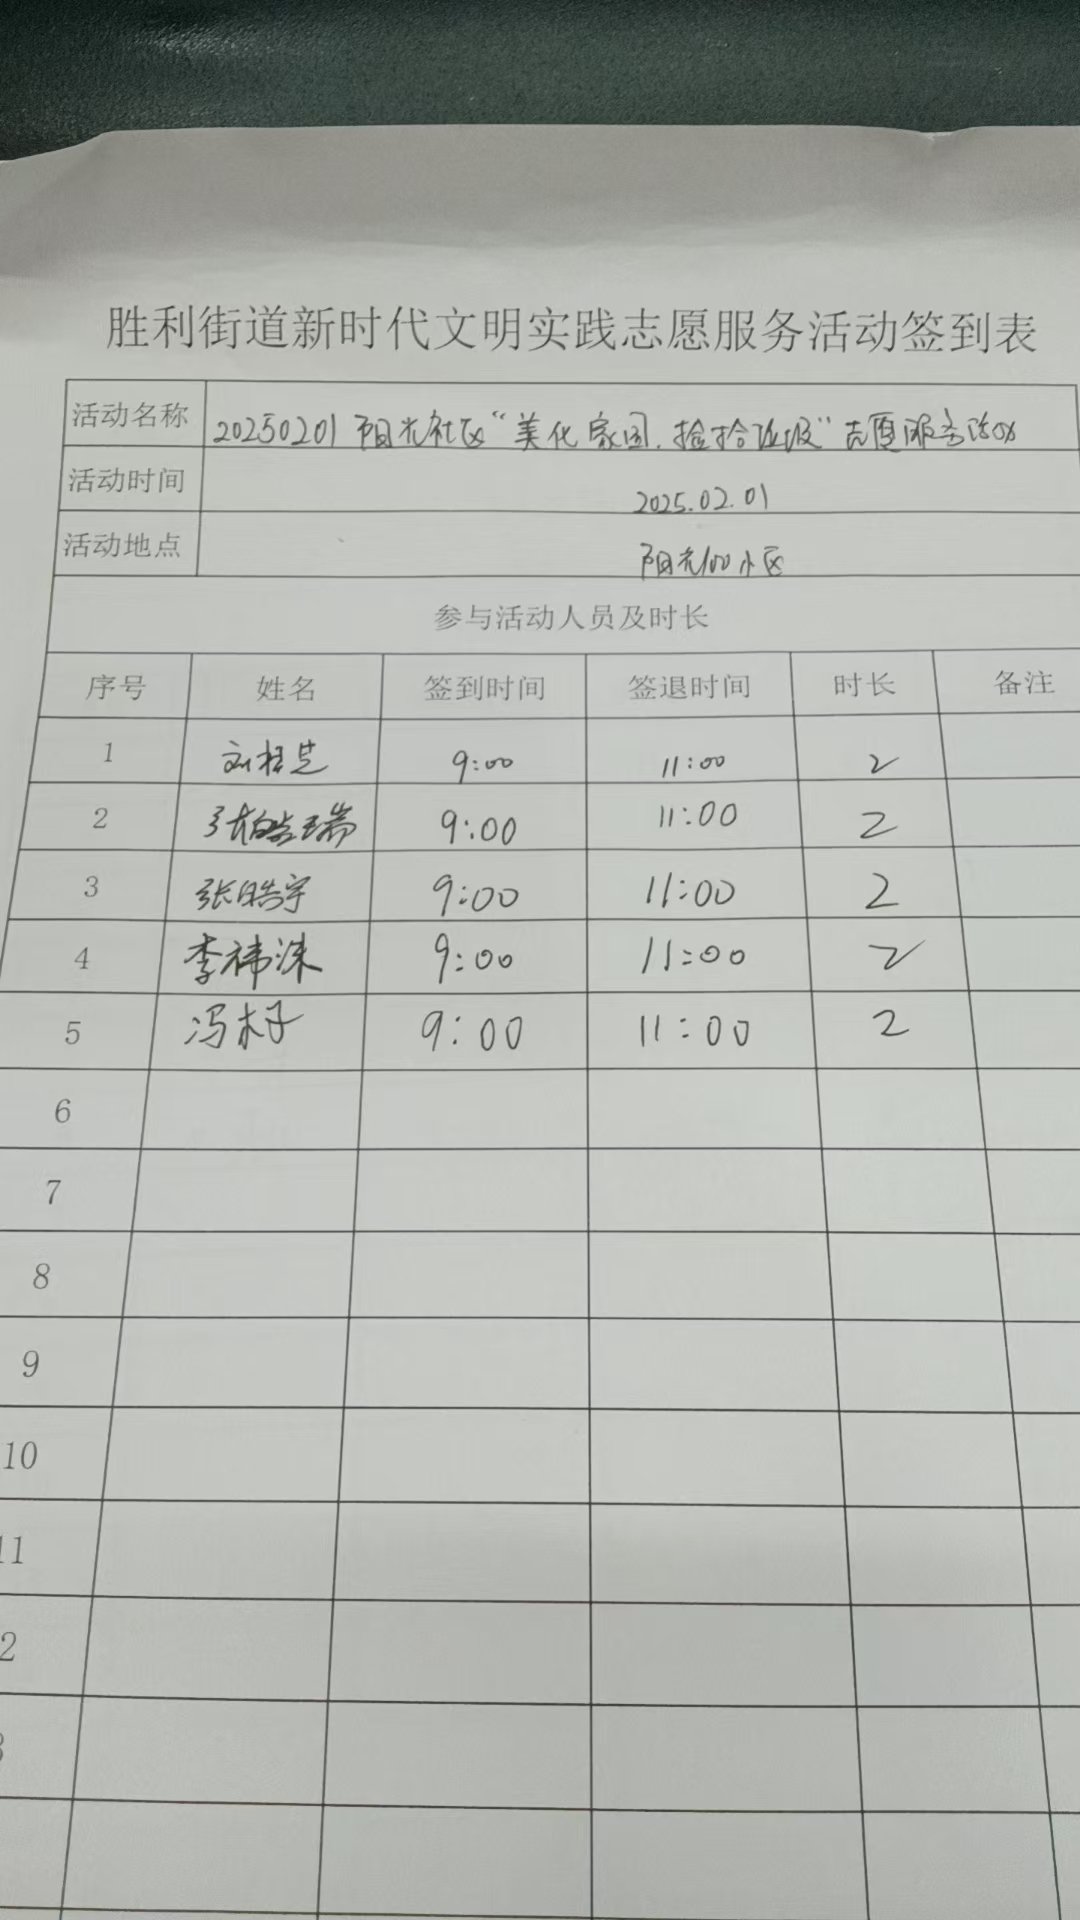 胜利街道新时代文明实践志愿服务活动签到表
活动名称 20250201阳光社区“美化家园.捡拾垃圾”志愿服务活动
活动时间 2025.02.01
活动地点 阳光100小区
参与活动人员及时长
序号 姓名 签到时间 签退时间 时长 备注
1 9:00 11:00 2
2 张皓瑞 9:00 11:00 2
3 张皓宇 9:00 11:00 2
4 李祎洙 9:00 11:00 2
5 冯木子 9:00 11:00 2
6
7
8
9
10
11
2
3